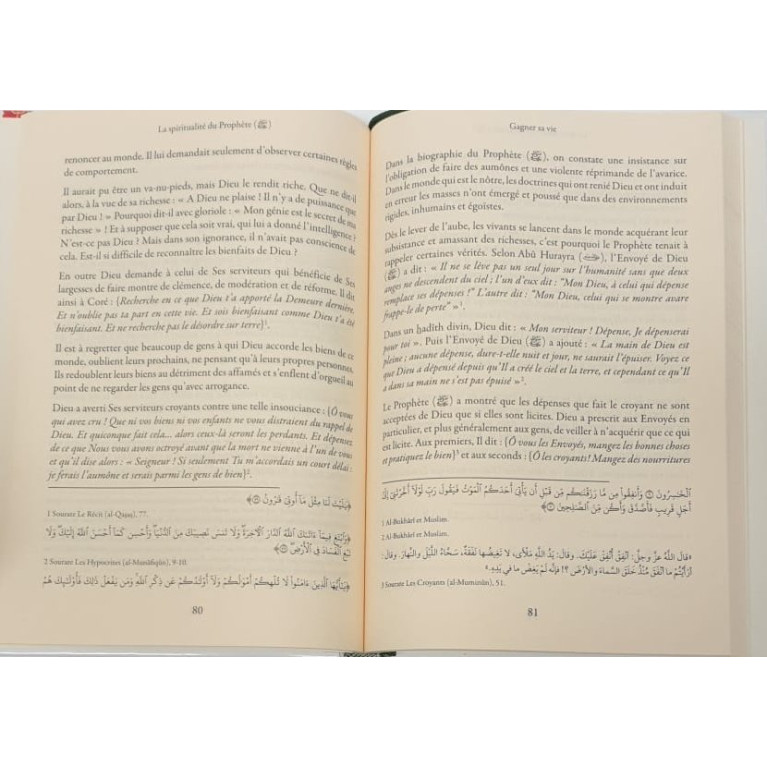 La spiritualité du Prophète (ﷺ)
renoncer au monde. Il lui demandait seulement d'observer certaines règles
de comportement.
Il aurait pu être un va-nu-pieds, mais Dieu le rendit riche. Que ne dit-il
alors, à la vue de sa richesse : « A Dieu ne plaise ! Il n'y a de puissance que
par Dieu ! » Pourquoi dit-il avec gloriole : « Mon génie est le secret de ma
richesse » ! Et à supposer que cela soit vrai, qui lui a donné l'intelligence ?
N'est-ce pas Dieu ? Mais dans son ignorance, il n'avait pas conscience de
cela. Est-il si difficile de reconnaître les bienfaits de Dieu ?
En outre Dieu demande à celui de Ses serviteurs qui bénéficie de Ses
largesses de faire montre de clémence, de modération et de réforme. Il dit
ainsi à Coré : {Recherche en ce que Dieu t'a apporté la Demeure dernière.
Et n'oublie pas ta part en cette vie. Et sois bienfaisant comme Dieu t'a été
bienfaisant. Et ne recherche pas le désordre sur terre}¹.
Il est à regretter que beaucoup de gens à qui Dieu accorde les biens de ce
monde, oublient leurs prochains, ne pensant qu'à leurs propres personnes.
Ils redoublent leurs biens au détriment des affamés et s'enflent d'orgueil au
point de ne regarder les gens qu'avec arrogance.
Dieu a averti Ses serviteurs croyants contre une telle insouciance : {Ô vous
qui avez cru ! Que ni vos biens ni vos enfants ne vous distraient du rappel de
Dieu. Et quiconque fait cela... alors ceux-là seront les perdants. Et dépensez
de ce que Nous vous avons octroyé avant que la mort ne vienne à l'un de vous
et qu'il dise alors : « Seigneur ! Si seulement Tu m'accordais un court délai :
je ferais l'aumône et serais parmi les gens de bien}².
﴿يَٰلَيْتَ لَنَا مِثْلَ مَآ أُوتِىَ قَٰرُونُ﴾
1 Sourate Le Récit (al-Qaṣaṣ), 77.
﴿وَٱبْتَغِ فِيمَآ ءَاتَىٰكَ ٱللَّهُ ٱلدَّارَ ٱلْأَخِرَةَ وَلَا تَنسَ نَصِيبَكَ مِنَ ٱلدُّنْيَا وَأَحْسِن كَمَآ أَحْسَنَ ٱللَّهُ إِلَيْكَ وَلَا
تَبْغِ ٱلْفَسَادَ فِى ٱلْأَرْضِ﴾
2 Sourate Les Hypocrites (al-Munāfiqūn), 9-10.
﴿يَٰٓأَيُّهَا ٱلَّذِينَ ءَامَنُوا۟ لَا تُلْهِكُمْ أَمْوَٰلُكُمْ وَلَآ أَوْلَٰدُكُمْ عَن ذِكْرِ ٱللَّهِ وَمَن يَفْعَلْ ذَٰلِكَ فَأُو۟لَٰٓئِكَ هُمُ
80
Gagner sa vie
Dans la biographie du Prophète (ﷺ), on constate une insistance sur
l'obligation de faire des aumônes et une violente réprimande de l'avarice.
Dans le monde qui est le nôtre, les doctrines qui ont renié Dieu et ont induit
en erreur les masses n'ont émergé et poussé que dans des environnements
rigides, inhumains et égoïstes.
Dès le lever de l'aube, les vivants se lancent dans le monde acquérant leur
subsistance et amassant des richesses, c'est pourquoi le Prophète tenait à
rappeler certaines vérités. Selon Abū Hurayra, l'Envoyé de Dieu
(ﷺ) a dit : « Il ne se lève pas un seul jour sur l'humanité sans que deux
anges ne descendent du ciel ; l'un d'eux dit : "Mon Dieu, à celui qui dépense
remplace ses dépenses !" L'autre dit : "Mon Dieu, celui qui se montre avare
frappe-le de perte" »¹.
Dans un ḥadīth divin, Dieu dit : « Mon serviteur ! Dépense, Je dépenserai
pour toi ». Puis l'Envoyé de Dieu (ﷺ) a ajouté : « La main de Dieu est
pleine ; aucune dépense, dure-t-elle nuit et jour, ne saurait l'épuiser. Voyez ce
que Dieu a dépensé depuis qu'Il a créé le ciel et la terre, et cependant ce qu'Il
a dans sa main ne s'est pas épuisé »².
Le Prophète (ﷺ) a montré que les dépenses que fait le croyant ne sont
acceptées de Dieu que si elles sont licites. Dieu a prescrit aux Envoyés en
particulier, et plus généralement aux gens, de veiller à n'acquérir que ce qui
est licite. Aux premiers, Il dit : {Ô vous les Envoyés, mangez les bonnes choses
et pratiquez le bien}³ et aux seconds : {Ô les croyants! Mangez des nourritures
ٱلْخَٰسِرُونَ ۝ وَأَنفِقُوا۟ مِن مَّا رَزَقْنَٰكُم مِّن قَبْلِ أَن يَأْتِىَ أَحَدَكُمُ ٱلْمَوْتُ فَيَقُولَ رَبِّ لَوْلَآ أَخَّرْتَنِىٓ إِلَىٰٓ
أَجَلٍ قَرِيبٍ فَأَصَّدَّقَ وَأَكُن مِّنَ ٱلصَّٰلِحِينَ﴾
1 Al-Bukhārī et Muslim.
2 Al-Bukhārī et Muslim.
«قال اللهُ عزَّ وجلَّ: أنْفِقْ أُنْفِقْ عَلَيْكَ. وقال: يَدُ اللَّهِ مَلْأى، لا تَغِيضُها نَفَقَةٌ، سَحَّاءُ اللَّيْلَ والنَّهارَ. وقال:
أرَأَيْتُمْ ما أنْفَقَ مُنْذُ خَلَقَ السَّماءَ والأرْضَ ؟! فإنَّه لَمْ يَغِضْ ما في يَدِهِ.
3 Sourate Les Croyants (al-Muminūn), 51.
81